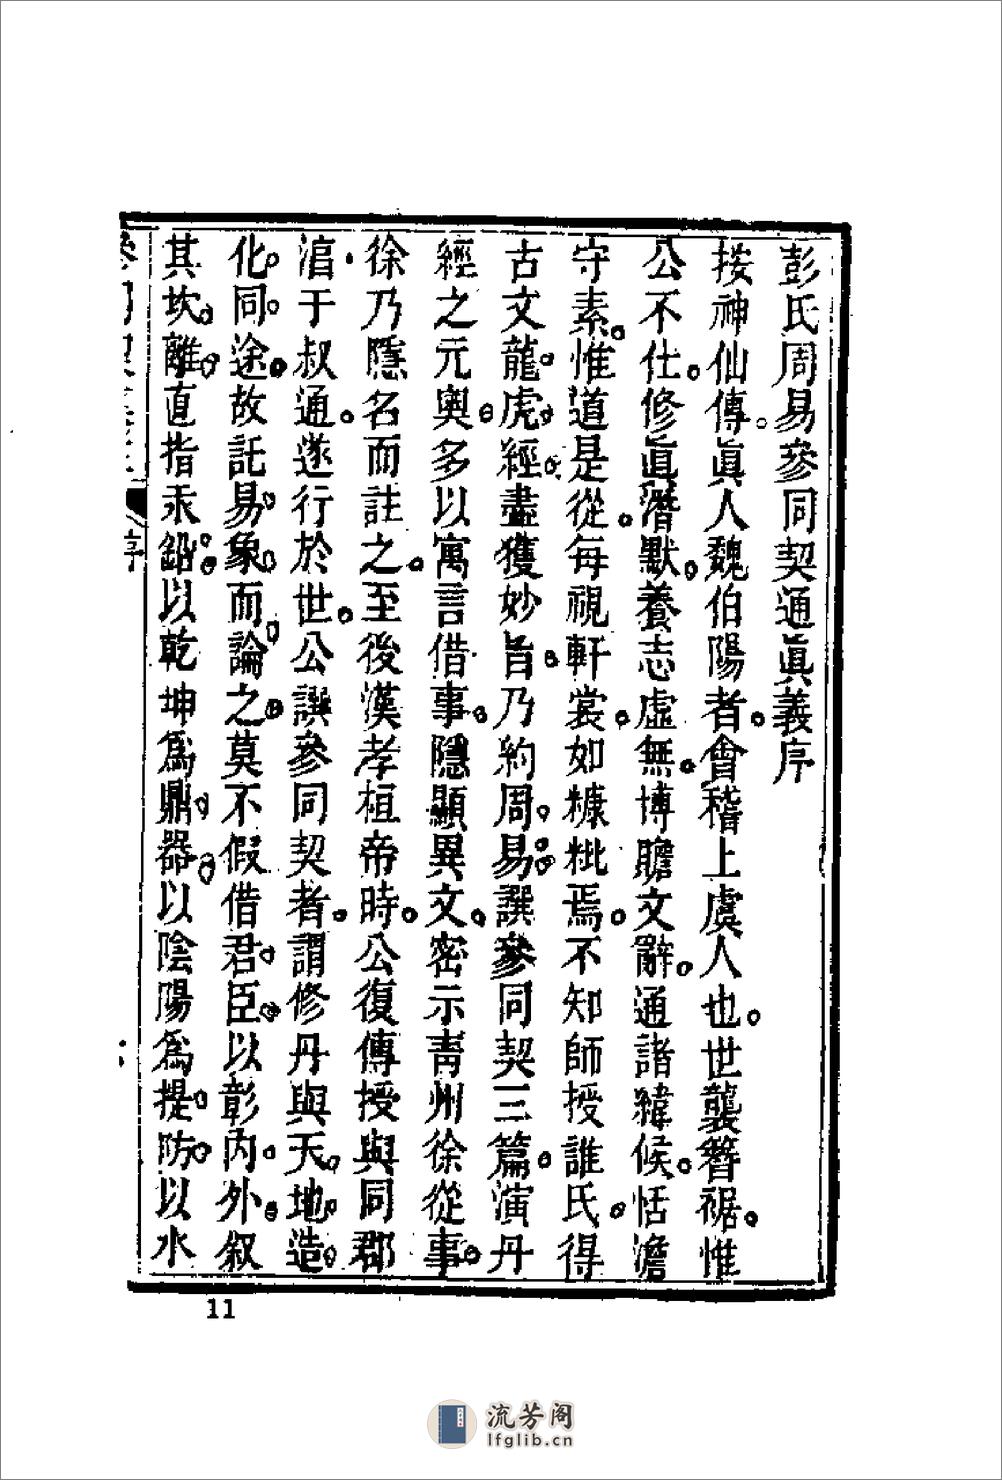 彭氏周易參同契通眞義序
按神仙傳。眞人魏伯陽者。會稽上虞人也。世襲簪裾。惟
公不仕。修眞潛默。養志虛無。博贍文辭。通諸緯候。恬澹
守素。惟道是從。每視軒裳。如糠粃焉。不知師授誰氏。得
古文龍虎經。盡獲妙旨。乃約周易。譔參同契三篇。演丹
經之元奧。多以寓言借事。隱顯異文。密示靑州徐從事。
徐乃隱名而註之。至後漢孝桓帝時。公復傳授與同郡
淯于叔通。遂行於世。公譔參同契者。謂修丹與天地造
化同途。故託易象而論之。莫不假借君臣。以彰内外。叙
其坎離。直指汞鉛。以乾坤爲鼎器。以陰陽爲提防。以水
序
11
流芳阁
lfglib.cn